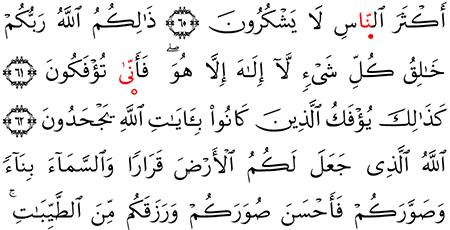 أَكۡثَرَ ٱلنَّاسِ لَا يَشۡكُرُونَ ٦٠ ذَٰلِكُمُ ٱللَّهُ رَبُّكُمۡ
خَٰلِقُ كُلِّ شَيۡءٖ لَّآ إِلَٰهَ إِلَّا هُوَۖ فَأَنَّىٰ تُؤۡفَكُونَ ٦١
كَذَٰلِكَ يُؤۡفَكُ ٱلَّذِينَ كَانُواْ بِـَٔايَٰتِ ٱللَّهِ يَجۡحَدُونَ ٦٢
ٱللَّهُ ٱلَّذِي جَعَلَ لَكُمُ ٱلۡأَرۡضَ قَرَارٗا وَٱلسَّمَآءَ بِنَآءٗ
وَصَوَّرَكُمۡ فَأَحۡسَنَ صُوَرَكُمۡ وَرَزَقَكُم مِّنَ ٱلطَّيِّبَٰتِۚ